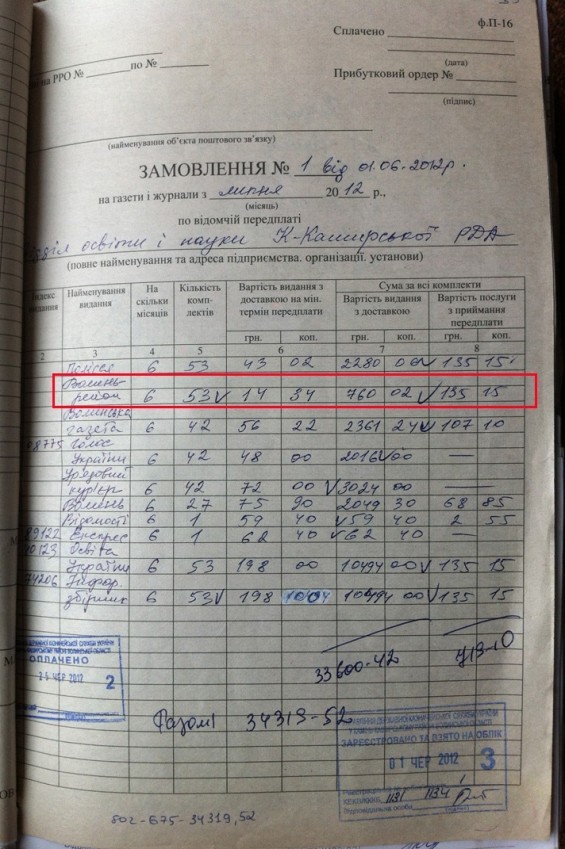 ф.П-16
Сплачено
(дата)
на РРО № по №
Прибутковий ордер №
(підпис)
(найменування об’єкта поштового зв’язку)
ЗАМОВЛЕННЯ № 1 від 01.06-2012р.
на газети і журнали з липня 2012 р.,
(місяць)
по відомчій передплаті
відділ освіти і науки К-Каширської РДА
(повне найменування та адреса підприємства. організації. установи)
Індекс видання Найменування видання На скільки місяців Кількість комп-лектів Вартість видання з доставкою на мін. термін передплати Сума за всі комплекти
Вартість видання з доставкою Вартість послуги з приймання передплати
грн. коп. грн. коп. грн. коп.
2 3 4 5 6 7 8
Полісся 6 53 43 02 2280 00 135 15
Волинь
район 6 53 14 34 760 02 135 15
Волинська
газета 6 42 56 22 2361 24 107 10
Голос
України 6 42 48 00 2016 00 —
Урядовий
кур'єр 6 42 72 00 3024 00 —
Волинь 6 27 75 90 2049 30 68 85
Відомості 6 1 59 40 59 40 2 55
Експрес 6 1 62 40 62 40 —
Освіта
України 6 53 198 00 10494 00 135 15
74206 Інфор.
збірник 6 53 198 10494 00 135 15
33600-42
ОПЛАЧЕНО
25 ЧЕР 2012 2
Разом: 34319-52
ЗАРЕЄСТРОВАНО ТА ВЗЯТО НА ОБЛІК
01 ЧЕР 2012 3
1131 1134
802-675-34319,52